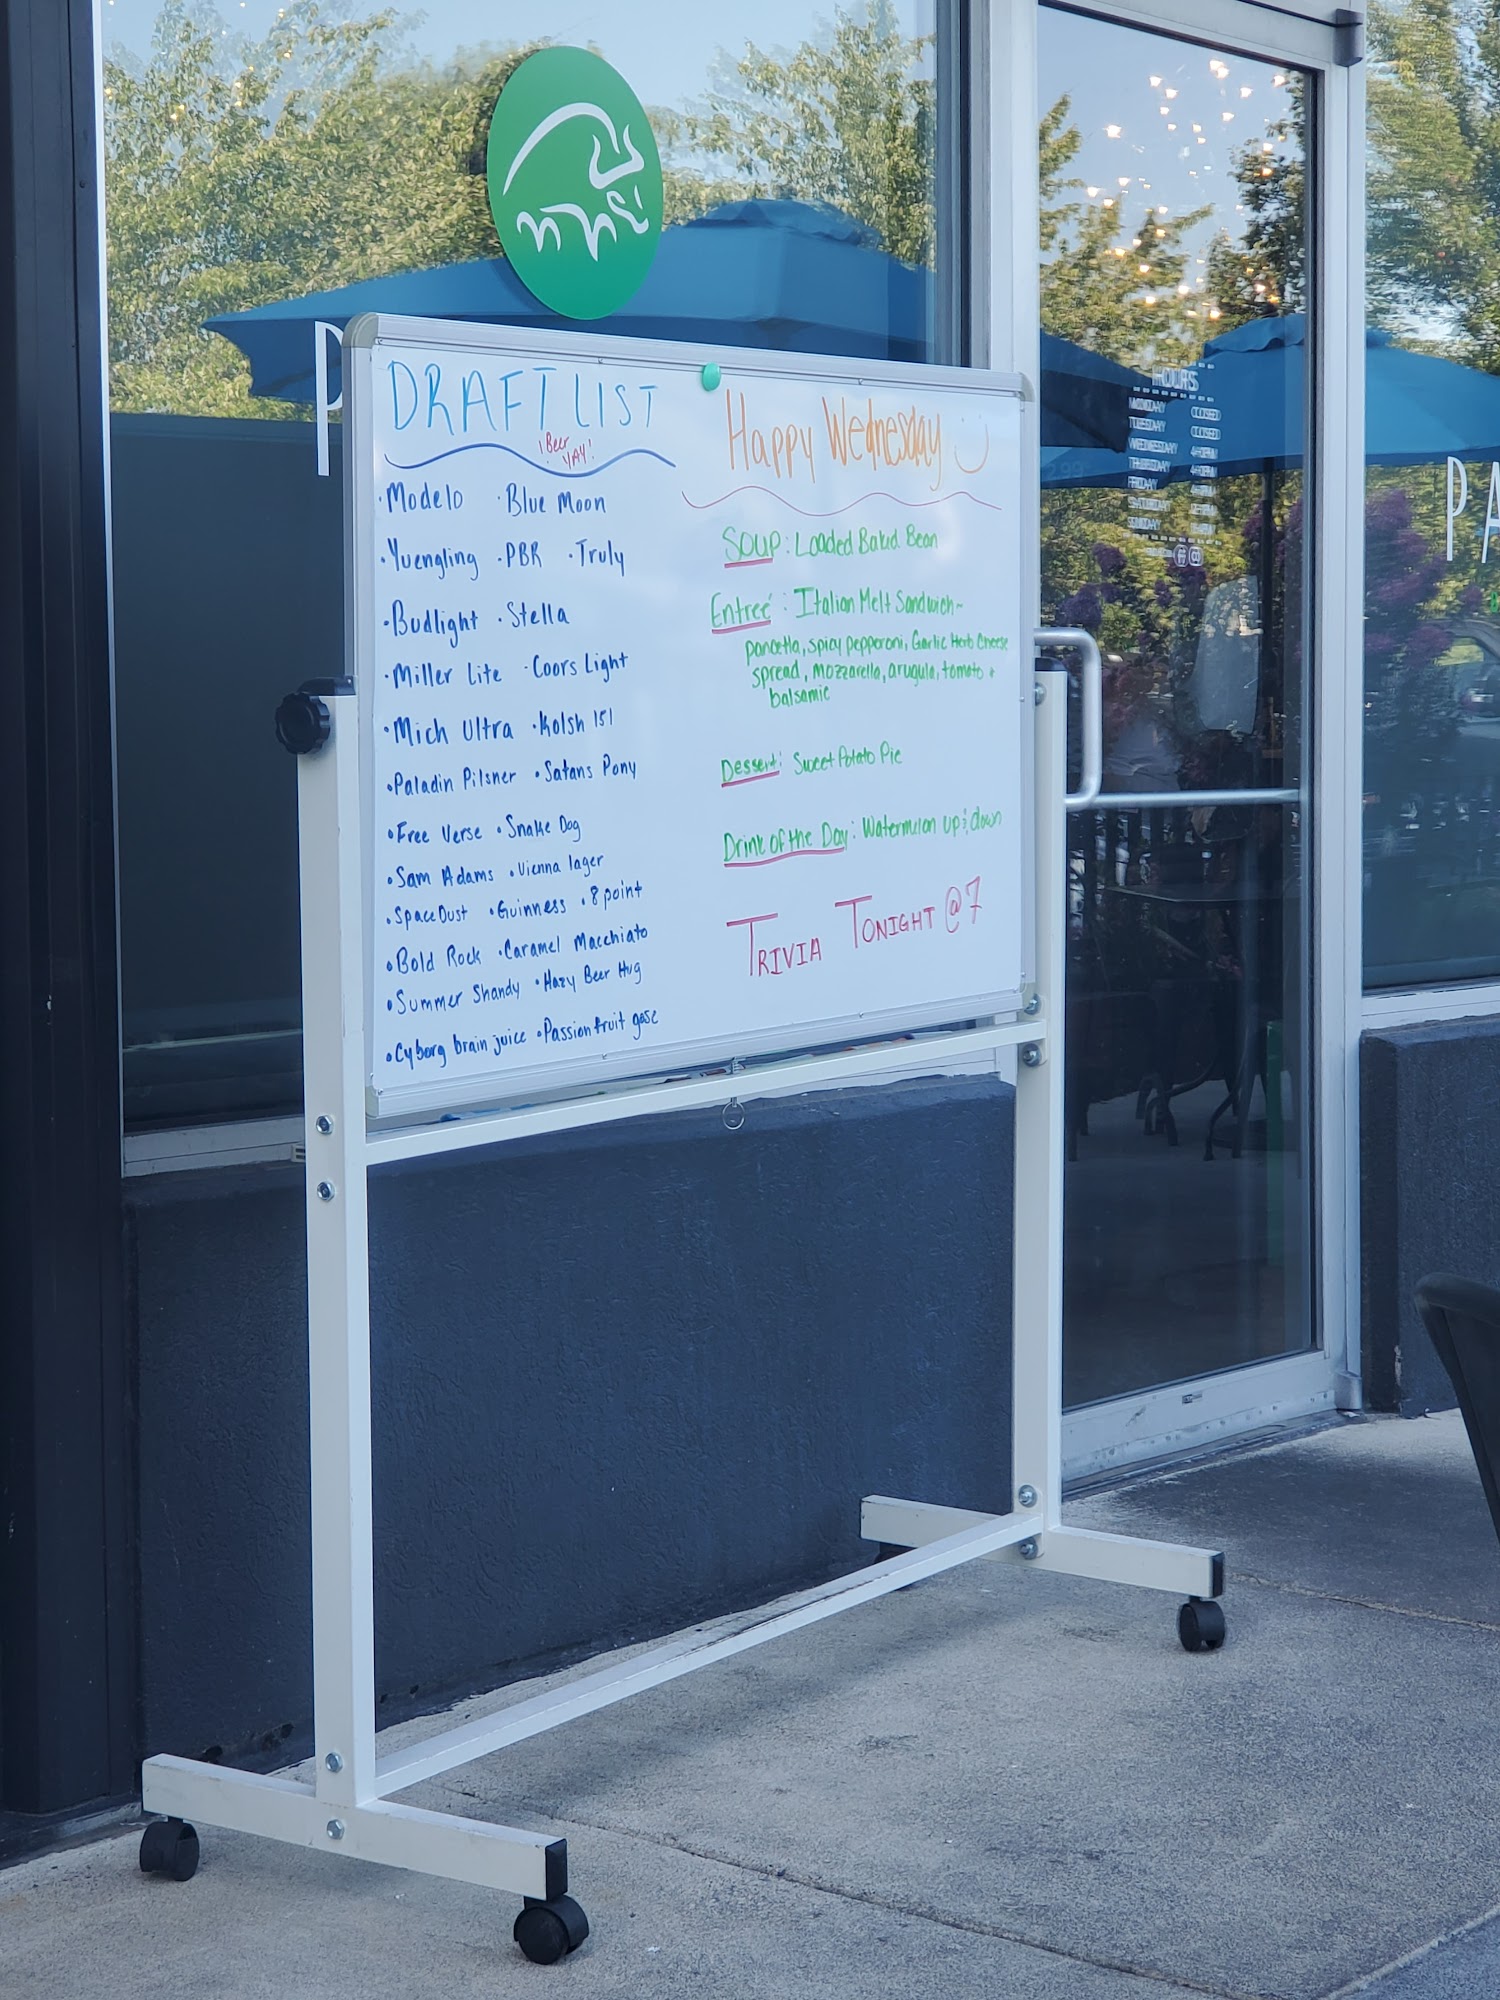 DRAFT LIST
! Beer YAY!
· Modelo · Blue Moon
· Yuengling · PBR · Truly
· Budlight · Stella
· Miller Lite · Coors Light
· Mich Ultra · Kolsh 151
· Paladin Pilsner · Satans Pony
· Free Verse · Snake Dog
· Sam Adams · Vienna lager
· SpaceDust · Guinness · 8 point
· Bold Rock · Caramel Macchiato
· Summer Shandy · Hazy Beer Hug
· Cyborg brain juice · Passion fruit gose
Happy Wednesday
SOUP: Loaded Baked Bean
Entreé: Italian Melt Sandwich~
pancetta, spicy pepperoni, Garlic Herb Cheese
spread, mozzarella, arugula, tomato +
balsamic
Dessert: Sweet Potato Pie
Drink of the Day: Watermelon up & down
TRIVIA TONIGHT @ 7
P
HOURS
MONDAY CLOSED
TUESDAY CLOSED
WEDNESDAY
THURSDAY
FRIDAY
SATURDAY
SUNDAY
PA